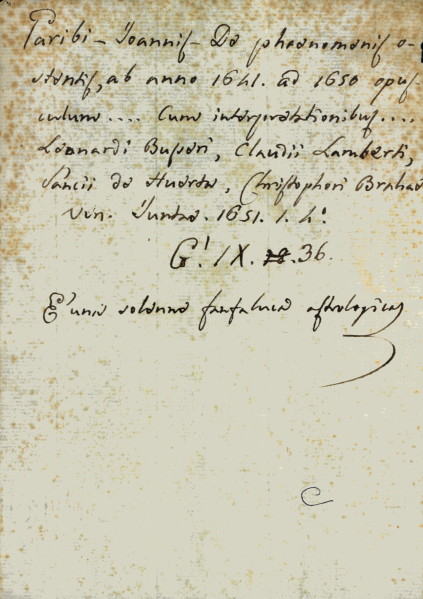 Taribi – Joannis – De phaenomenis o-
stentis, ab anno 1641. ad 1650 opus-
culum .... Cum interpretationibus ....
Leonardi Busseri, Claudii Lamberti,
Sancii de Huerta, Christophori Brahae
Ven. Juntae. 1651. 1. 4°.
G! IX. 36.
E' una solenne fanfaluca astrologica